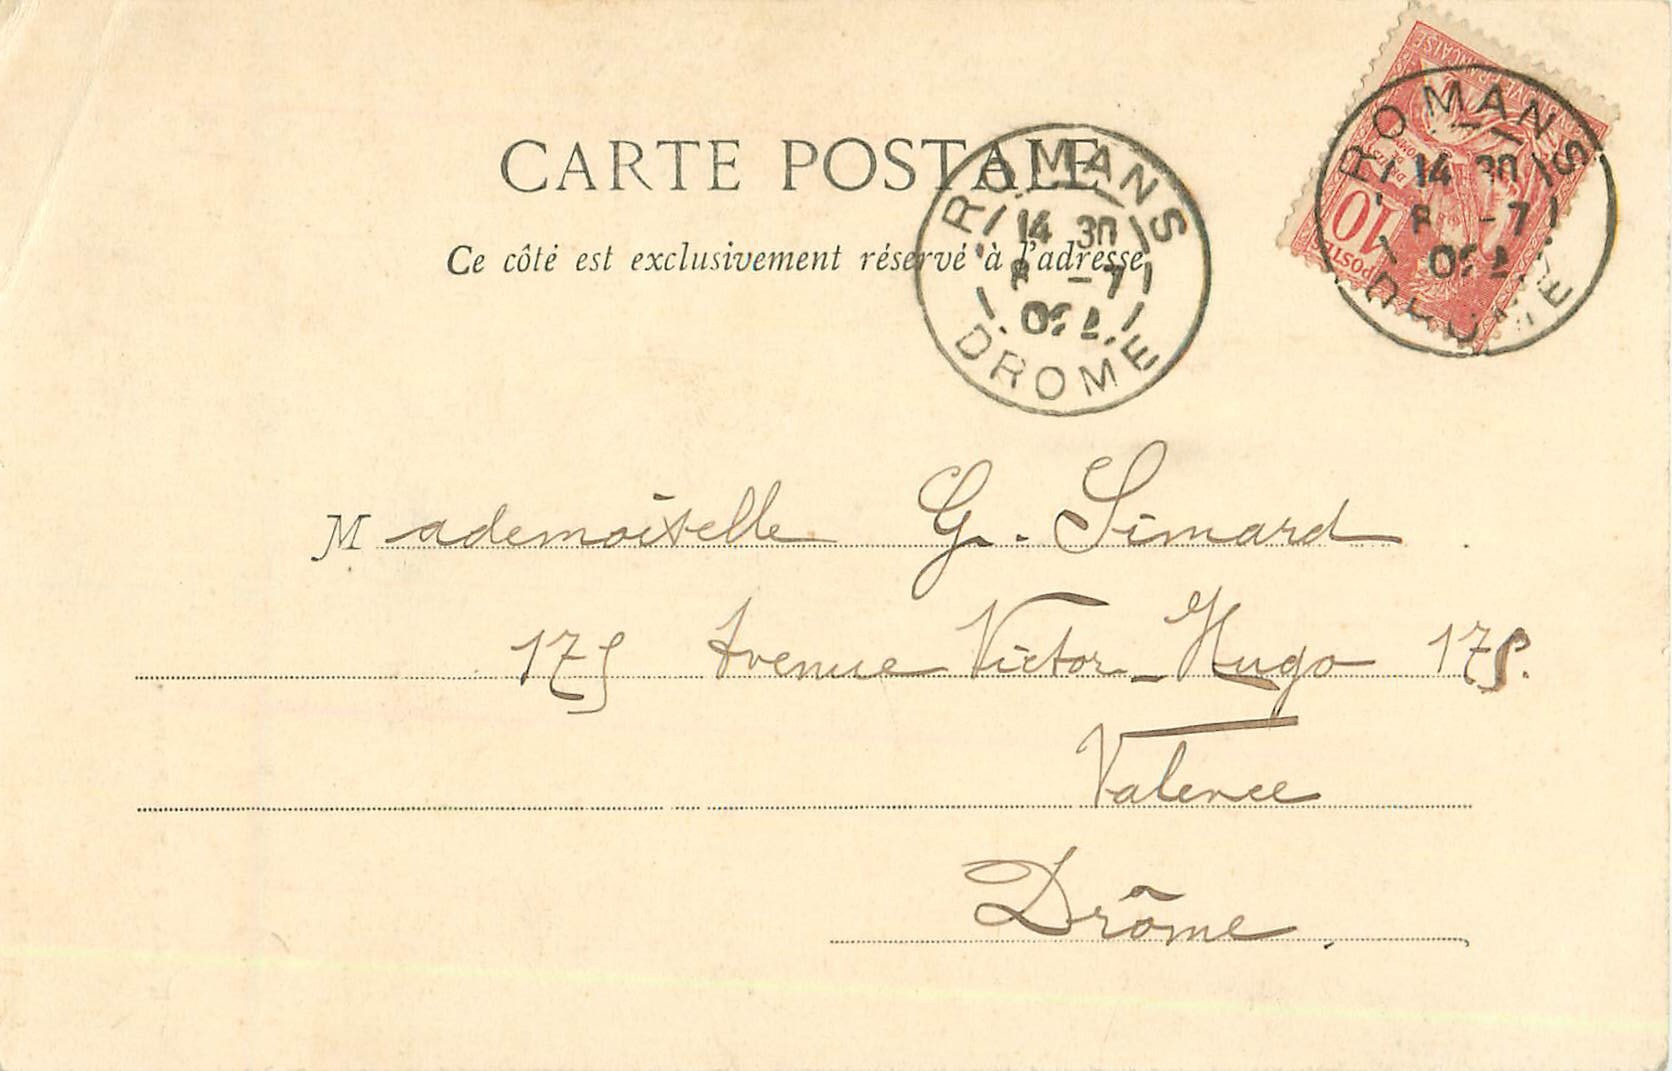 CARTE POSTALE
Ce côté est exclusivement réservé à l'adresse
ROMANS
14 30
8 -7
02
DROME
ROMANS
14 30
8 -7
02
DROME
10
POSTES
Mademoiselle G. Simard
175 Avenue Victor-Hugo 175.
Valence
Drôme.